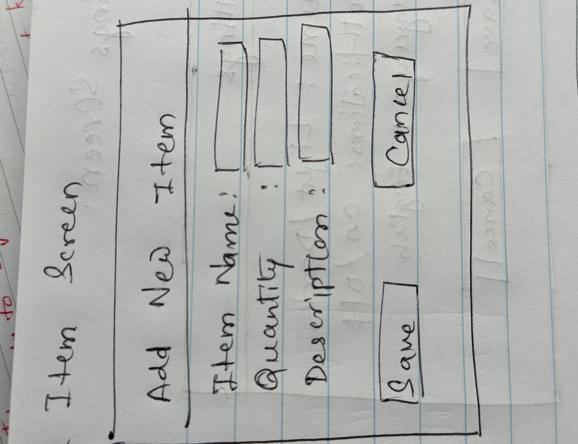 Item Screen
Add New Item
Item Name:
Quantity :
Description:
Save Cancel